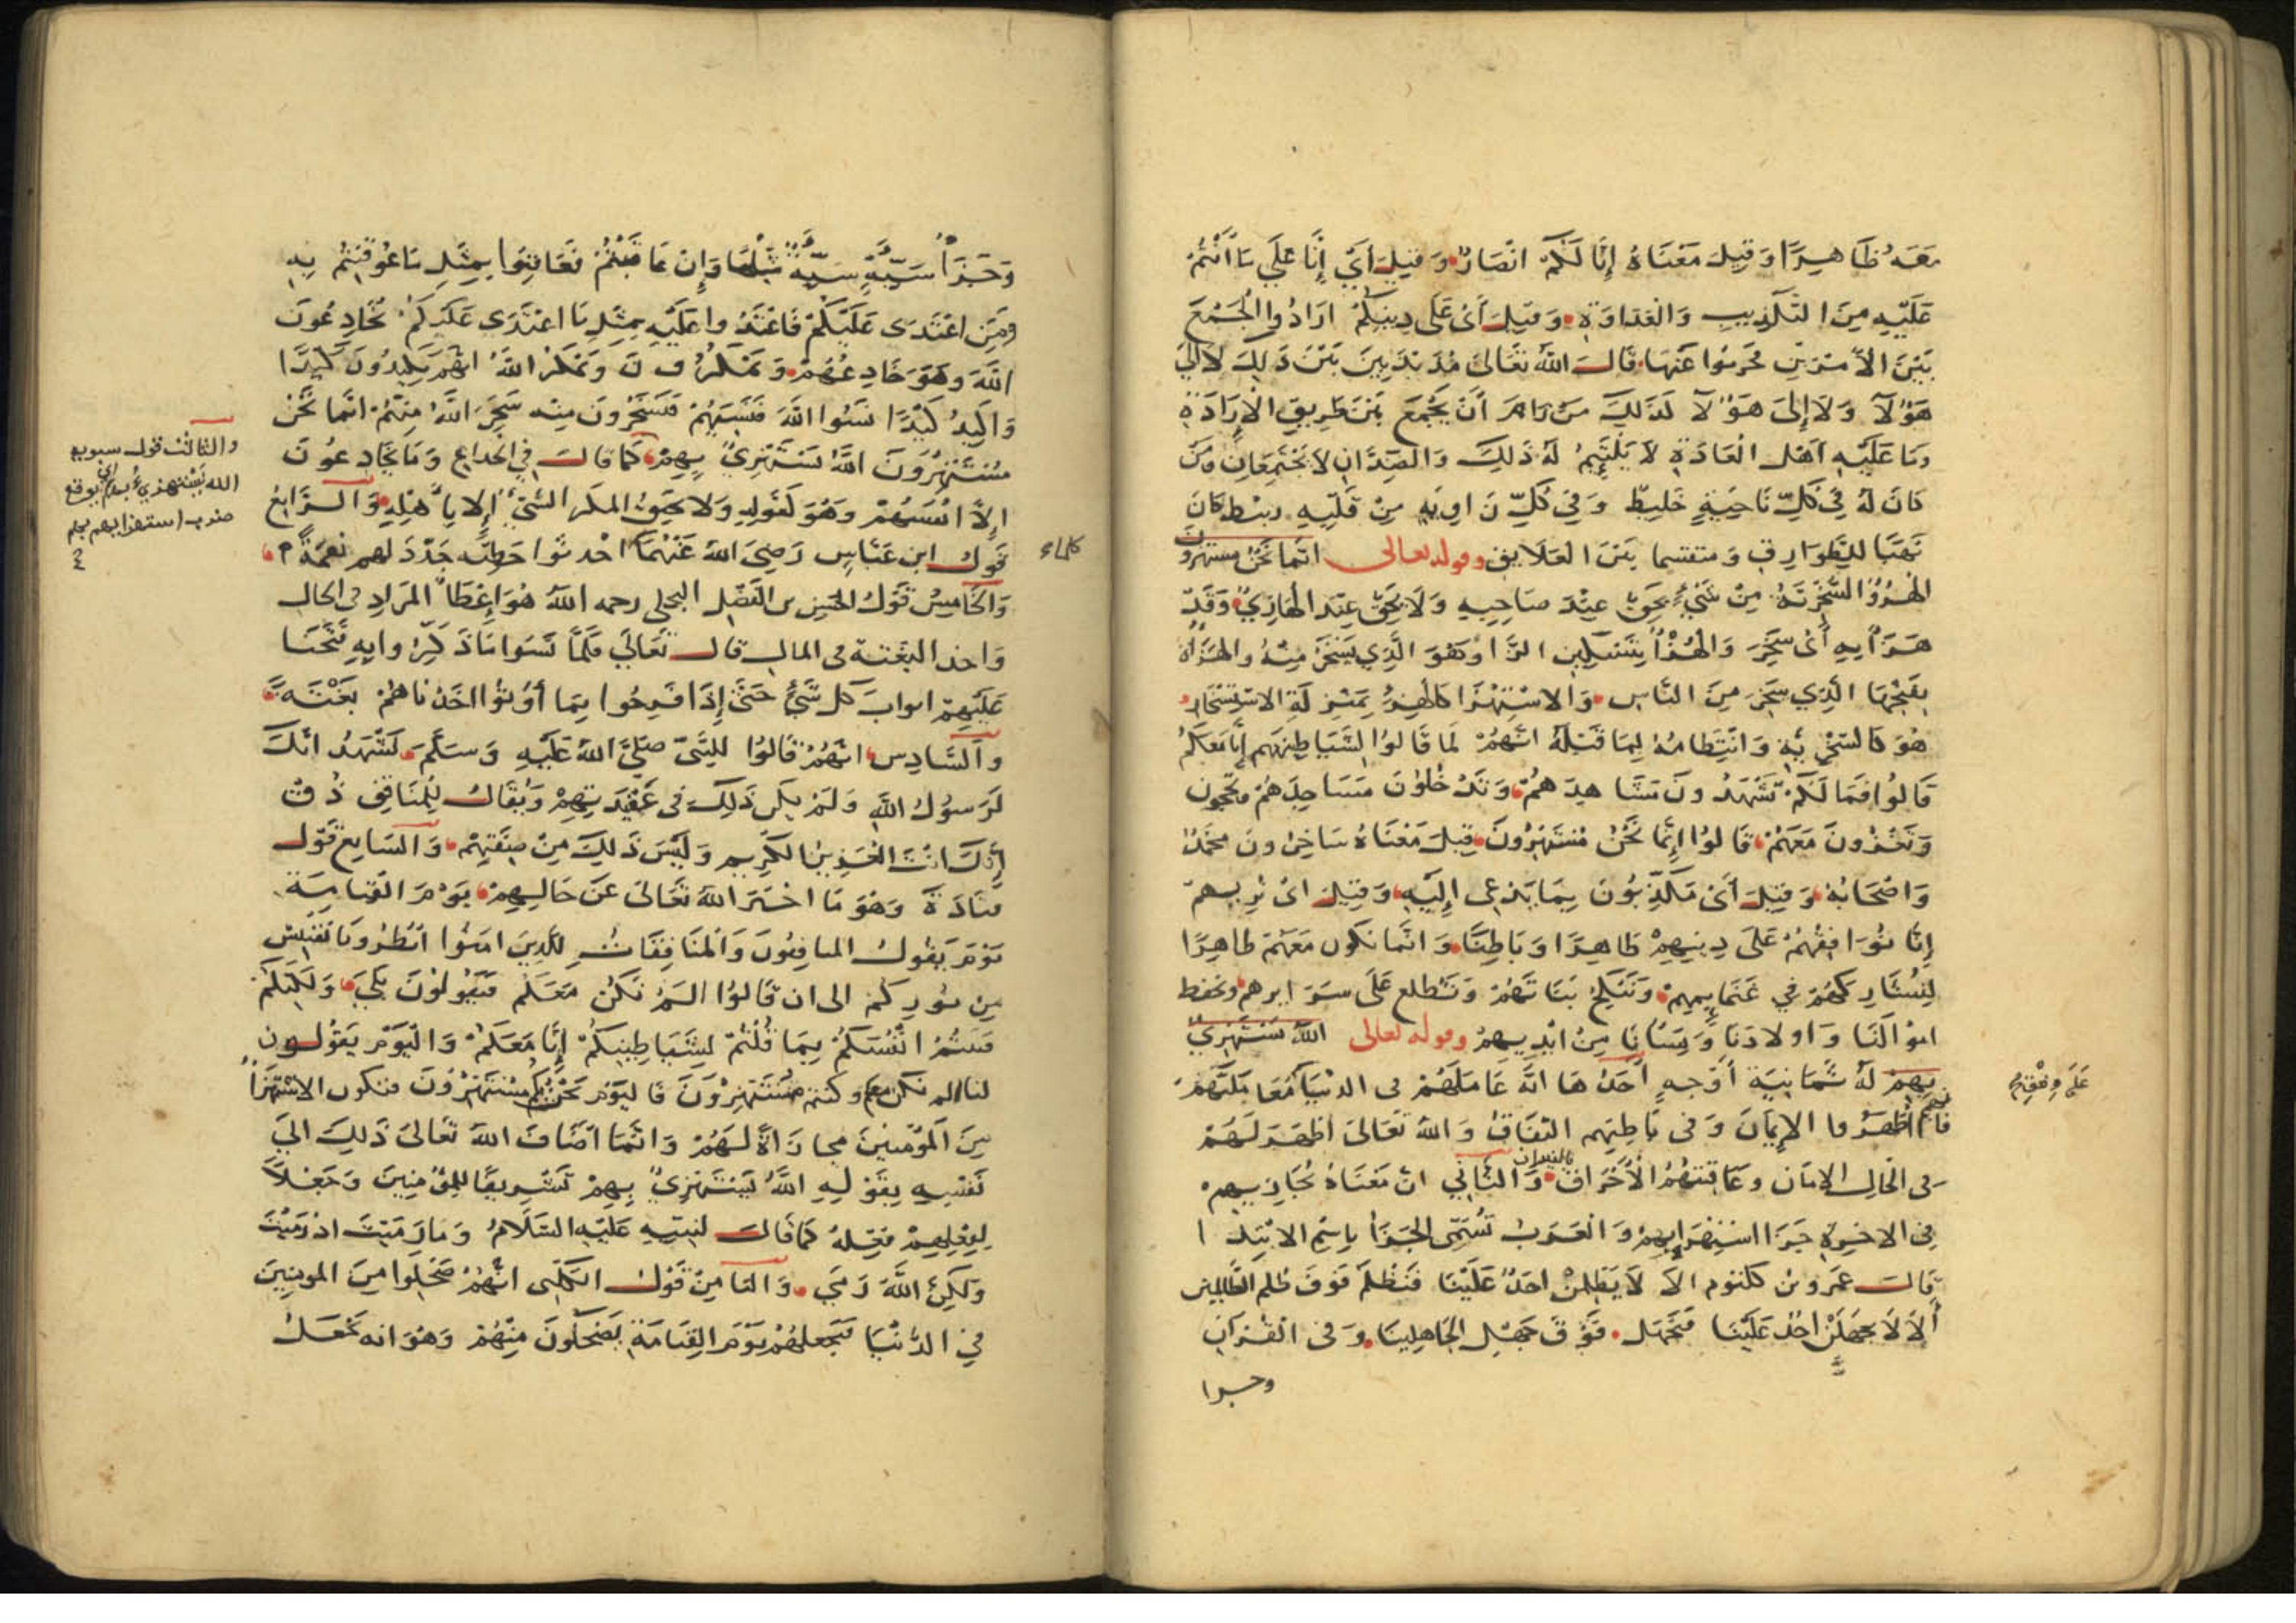 معه ظاهرا وقيل معناه إنا لكم انصار وقيل أي إنا على ما أنتم
عليه من التكذيب والعداوة وقيل أي على دينكم ارادوا الجمع
بين الأمرين فحرموا عنها قال الله تعالى مذبذبين بين ذلك لا الى
هؤلاء ولا إلى هؤلاء لذلك من رام أن يجمع بين طريق الإرادة
وما عليه أهل العادة لا يلتئم له ذلك والضدان لا يجتمعان ومن
كان له في كل ناحية خليط وفي كل زاوية من قلبه ربط كان
نهبا للطوارق ومنقسما بين العلايق وقوله تعالى انما نحن مستهزون
الهزؤ السخرية من شيء يحق عند صاحبه ولا يحق عند الهازئ وقد
هزأ به أي سخر والهزأ بتسكين الزا وهو الذي يسخر منه والهزأة
بفتحها الذي سخر من الناس والاستهزا كالهزء بمنزلة الاستسخار
هو كالسخرية وانتظامه لما قبله انهم لما قالوا لشياطينهم إنا معكم
قالوا فما لكم تشهدون مشاهدهم وتدخلون مساجدهم وتحجون
وتغزون معهم قالوا إنما نحن مستهزون قيل معناه ساخرون بمحمد
واصحابه وقيل أي مكذبون بما يدعى إليه وقيل اي نريهم
إنا نوافقهم على دينهم ظاهرا وباطنا وانما نكون معهم ظاهرا
لنشاركهم في غنايمهم وننكح بناتهم ونطلع على سرايرهم ونحفظ
اموالنا واولادنا ونسانا من ايديهم وقوله تعالى الله يستهزئ
بهم له ثمانية أوجه أحدها انه عاملهم في الدنيا معاملتهم
على وفقهم
فانهم أظهروا الإيمان وفي باطنهم النفاق والله تعالى اظهر لهم
في الحال الامان وعاقبتهم الأحراق بالنيران والثاني ان معناه يجازيهم
في الاخرة جزا استهزايهم والعرب تسمى الجزأ باسم الابتدا
قالت عمرو بن كلثوم الا لا يظلمن احد علينا فنظلم فوق ظلم الظالمين
ألا لا يجهلن احد علينا فنجهل فوق جهل الجاهلينا وفي القرآن
وجزا
وجزأ سيئة سيئة مثلها وإن عاقبتم فعاقبوا بمثل ما عوقبتم به
ومن اعتدى عليكم فاعتدوا عليه بمثل ما اعتدى عليكم يخادعون
الله وهو خادعهم ويمكرون ويمكر الله انهم يكيدون كيدا
واكيد كيدا نسوا الله فنسيهم فيسخرون منه سخر الله منهم انما نحن
مستهزؤن الله يستهزئ بهم كما قالت في الخداع وما يخادعون
والثالث قول سيبويه
الله يستهزئ بهم اي يوقع
ضرب استهزايهم بهم
إلا انفسهم وهو كقوله ولا يحيق المكر السيئ إلا باهله والرابع
قول ابن عباس رضي الله عنهما كلما احدثوا خطيئة جدد لهم نعمة
والخامس قول الحسين بن الفضل البجلي رحمه الله هو اعطا المراد في الحال
واخذ البغتة في المال قال تعالى فلما نسوا ما ذكروا به فتحنا
عليهم ابواب كل شيء حتى إذا فرحوا بما أوتوا اخذناهم بغتة
والسادس انهم قالوا للنبي صلى الله عليه وسلم نشهد انك
لرسول الله ولم يكن ذلك في عقيدتهم ويقال للمنافق ذق
إنك انت العزيز الكريم وليس ذلك من صفتهم والسابع قول
قتادة وهو ما اخبر الله تعالى عن حالهم يوم القيامة
يوم يقول المنافقون والمنافقات للذين امنوا انظرونا نقتبس
من نوركم الى ان قالوا الم نكن معكم فيقولون بلى ولكنكم
فتنتم انفسكم بما قلتم لشياطينكم إنا معكم واليوم يقولون
لنا الم نكن معكم وكنتم مستهزؤن فاليوم نحن بكم مستهزؤن فتكون الاستهزأ
من المؤمنين مجازاة لهم وانما اضاف الله تعالى ذلك الى
نفسه بقوله الله يستهزئ بهم تشريفا للمؤمنين وجعلا
لفعلهم فعله كما قال لنبيه عليه السلام وما رميت اذ رميت
ولكن الله رمى والثامن قول الكلبي انهم ضحكوا من المومنين
في الدنيا فيجعلهم يوم القيامة يضحكون منهم وهو انه يجعل